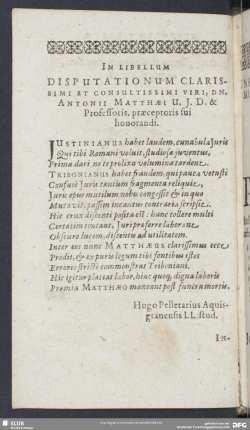 IN LIBELLUM
DISPUTATIONUM CLARIS-
SIMI ET CONSULTISSIMI VIRI, DN.
ANTONII MATTHÆI U. J. D. &
Professoris, præceptoris sui
honorandi.
JUSTINIANUS habet laudem, cunabula Juris
Qui tibi Romani voluit, studiosa juventus,
Prima dari ne te prolixa volumina tardent.
TRIBONIANUS habet fraudem, qui pauca vetusti
Confusè Juris tantum fragmenta reliquit,
Juris opus mutilum nobis congessit & in quo
Mutavit passim incautus contraria scripsit.
Hic crux discenti posita est: hanc tollere multi
Certatim tentant, Juri proferre labore
Obscuro lucem, discentis ad utilitatem.
Inter eos nunc MATTHÆUS clarissimus ecce
Prodit, & ex puris legum tibi fontibus istos
Errores stricti commonstrat Triboniani.
Hic igitur placeat labor, hinc quoque digna laboris
Præmia MATTHÆO maneant post funera mortis.
Hugo Pelletarius Aquis-
granensis LL. stud.
In-
SLUB